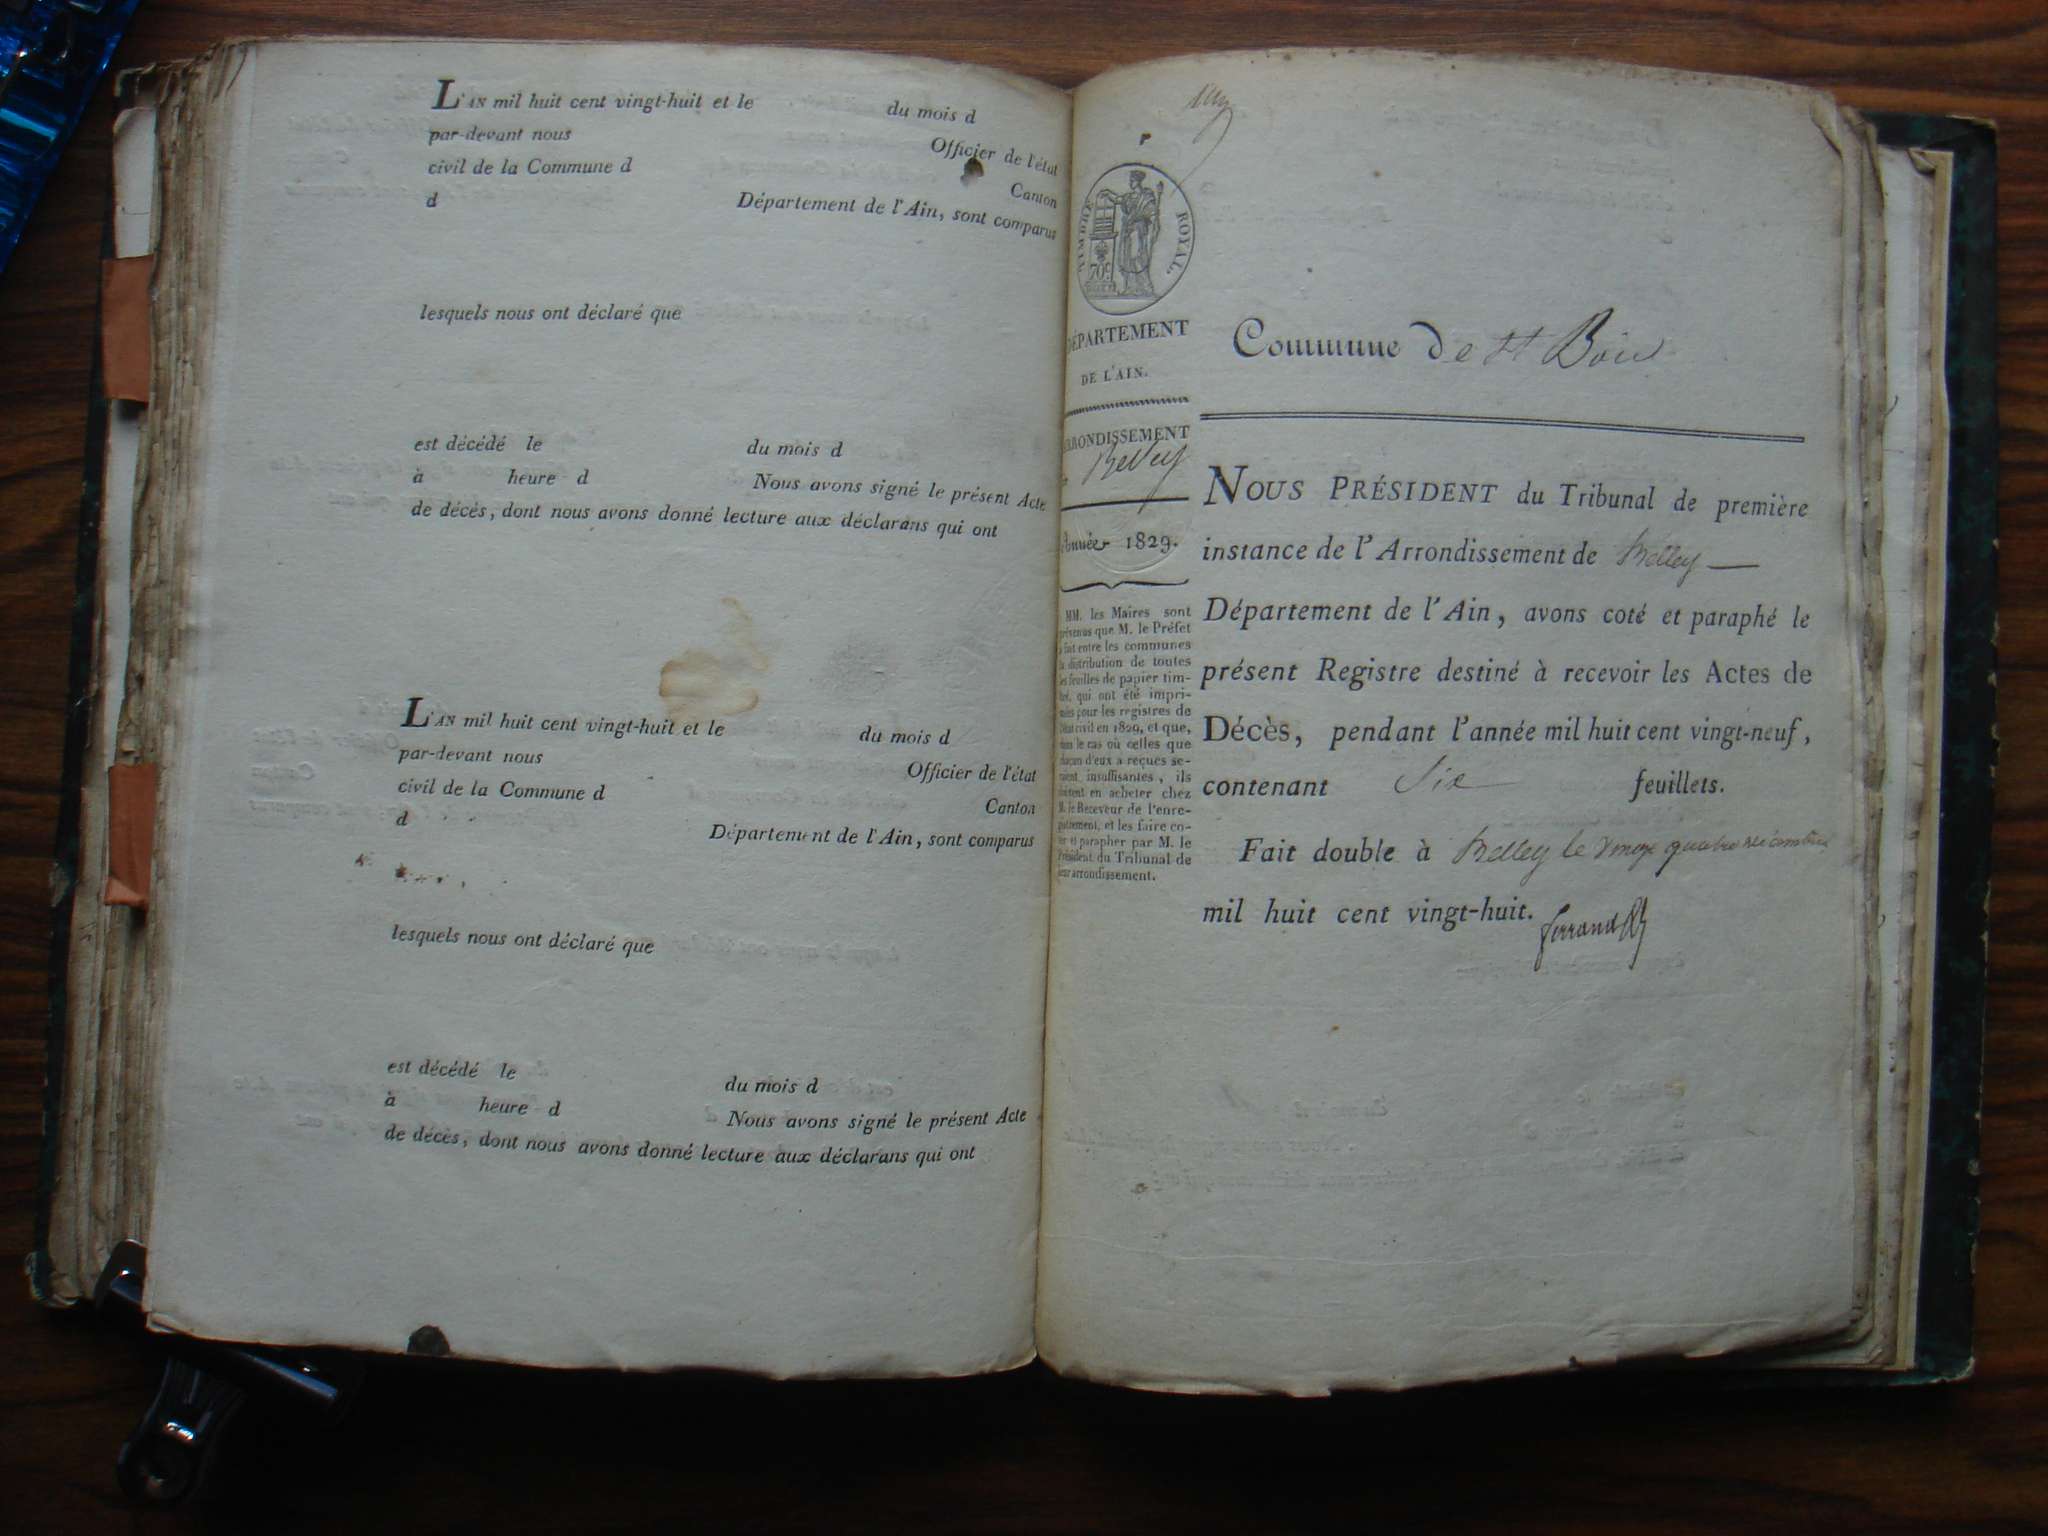 L'AN mil huit cent vingt-huit et le du mois d
par-devant nous Officier de l'état
civil de la Commune d Canton
d Département de l'Ain, sont comparus
lesquels nous ont déclaré que
est décédé le du mois d
à heure d Nous avons signé le présent Acte
de décès, dont nous avons donné lecture aux déclarans qui ont
L'AN mil huit cent vingt-huit et le du mois d
par-devant nous Officier de l'état
civil de la Commune d Canton
d Département de l'Ain, sont comparus
lesquels nous ont déclaré que
est décédé le du mois d
à heure d Nous avons signé le présent Acte
de décès, dont nous avons donné lecture aux déclarans qui ont
TIMBRE ROYAL
70c
DÉPARTEMENT
DE L'AIN.
ARRONDISSEMENT
Belley
Année 1829.
MM. les Maires sont
prévenus que M. le Préfet
a fait entre les communes
la distribution de toutes
les feuilles de papier tim-
bré, qui ont été impri-
mées pour les registres de
l'état civil en 1829, et que,
dans le cas où celles que
chacun d'eux a reçues se-
raient insuffisantes, ils
doivent en acheter chez
M. le Receveur de l'enre-
gistrement, et les faire co-
ter et parapher par M. le
Président du Tribunal de
leur arrondissement.
Commune de St Bois
NOUS PRÉSIDENT du Tribunal de première
instance de l'Arrondissement de Belley
Département de l'Ain, avons coté et paraphé le
présent Registre destiné à recevoir les Actes de
Décès, pendant l'année mil huit cent vingt-neuf,
contenant Six feuillets.
Fait double à Belley le vingt quatre décembre
mil huit cent vingt-huit. ferrand